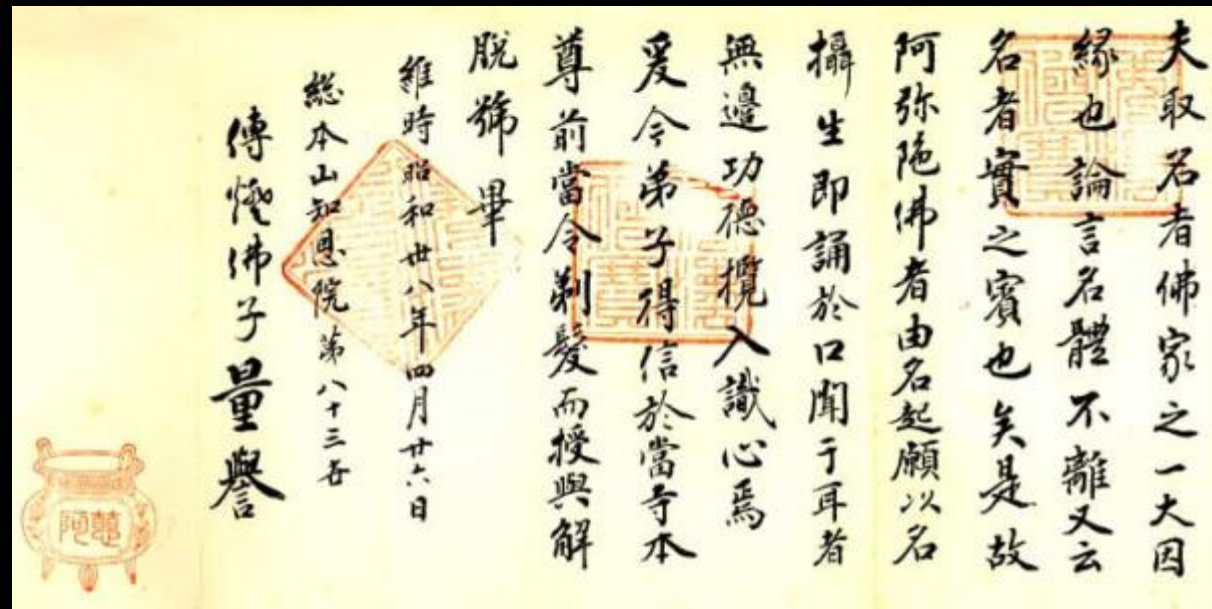 夫取名者佛家之一大因
縁也論言名體不離又云
名者實之賓也矣是故
阿弥陁佛者由名起願以名
攝生即誦於口聞于耳者
無邊功德攬入識心焉
爰令弟子得信於當寺本
尊前當令剃髮而授與解
脱號畢
維時昭和丗八年四月廿六日
総本山知恩院第八十三世
傳燈佛子量譽